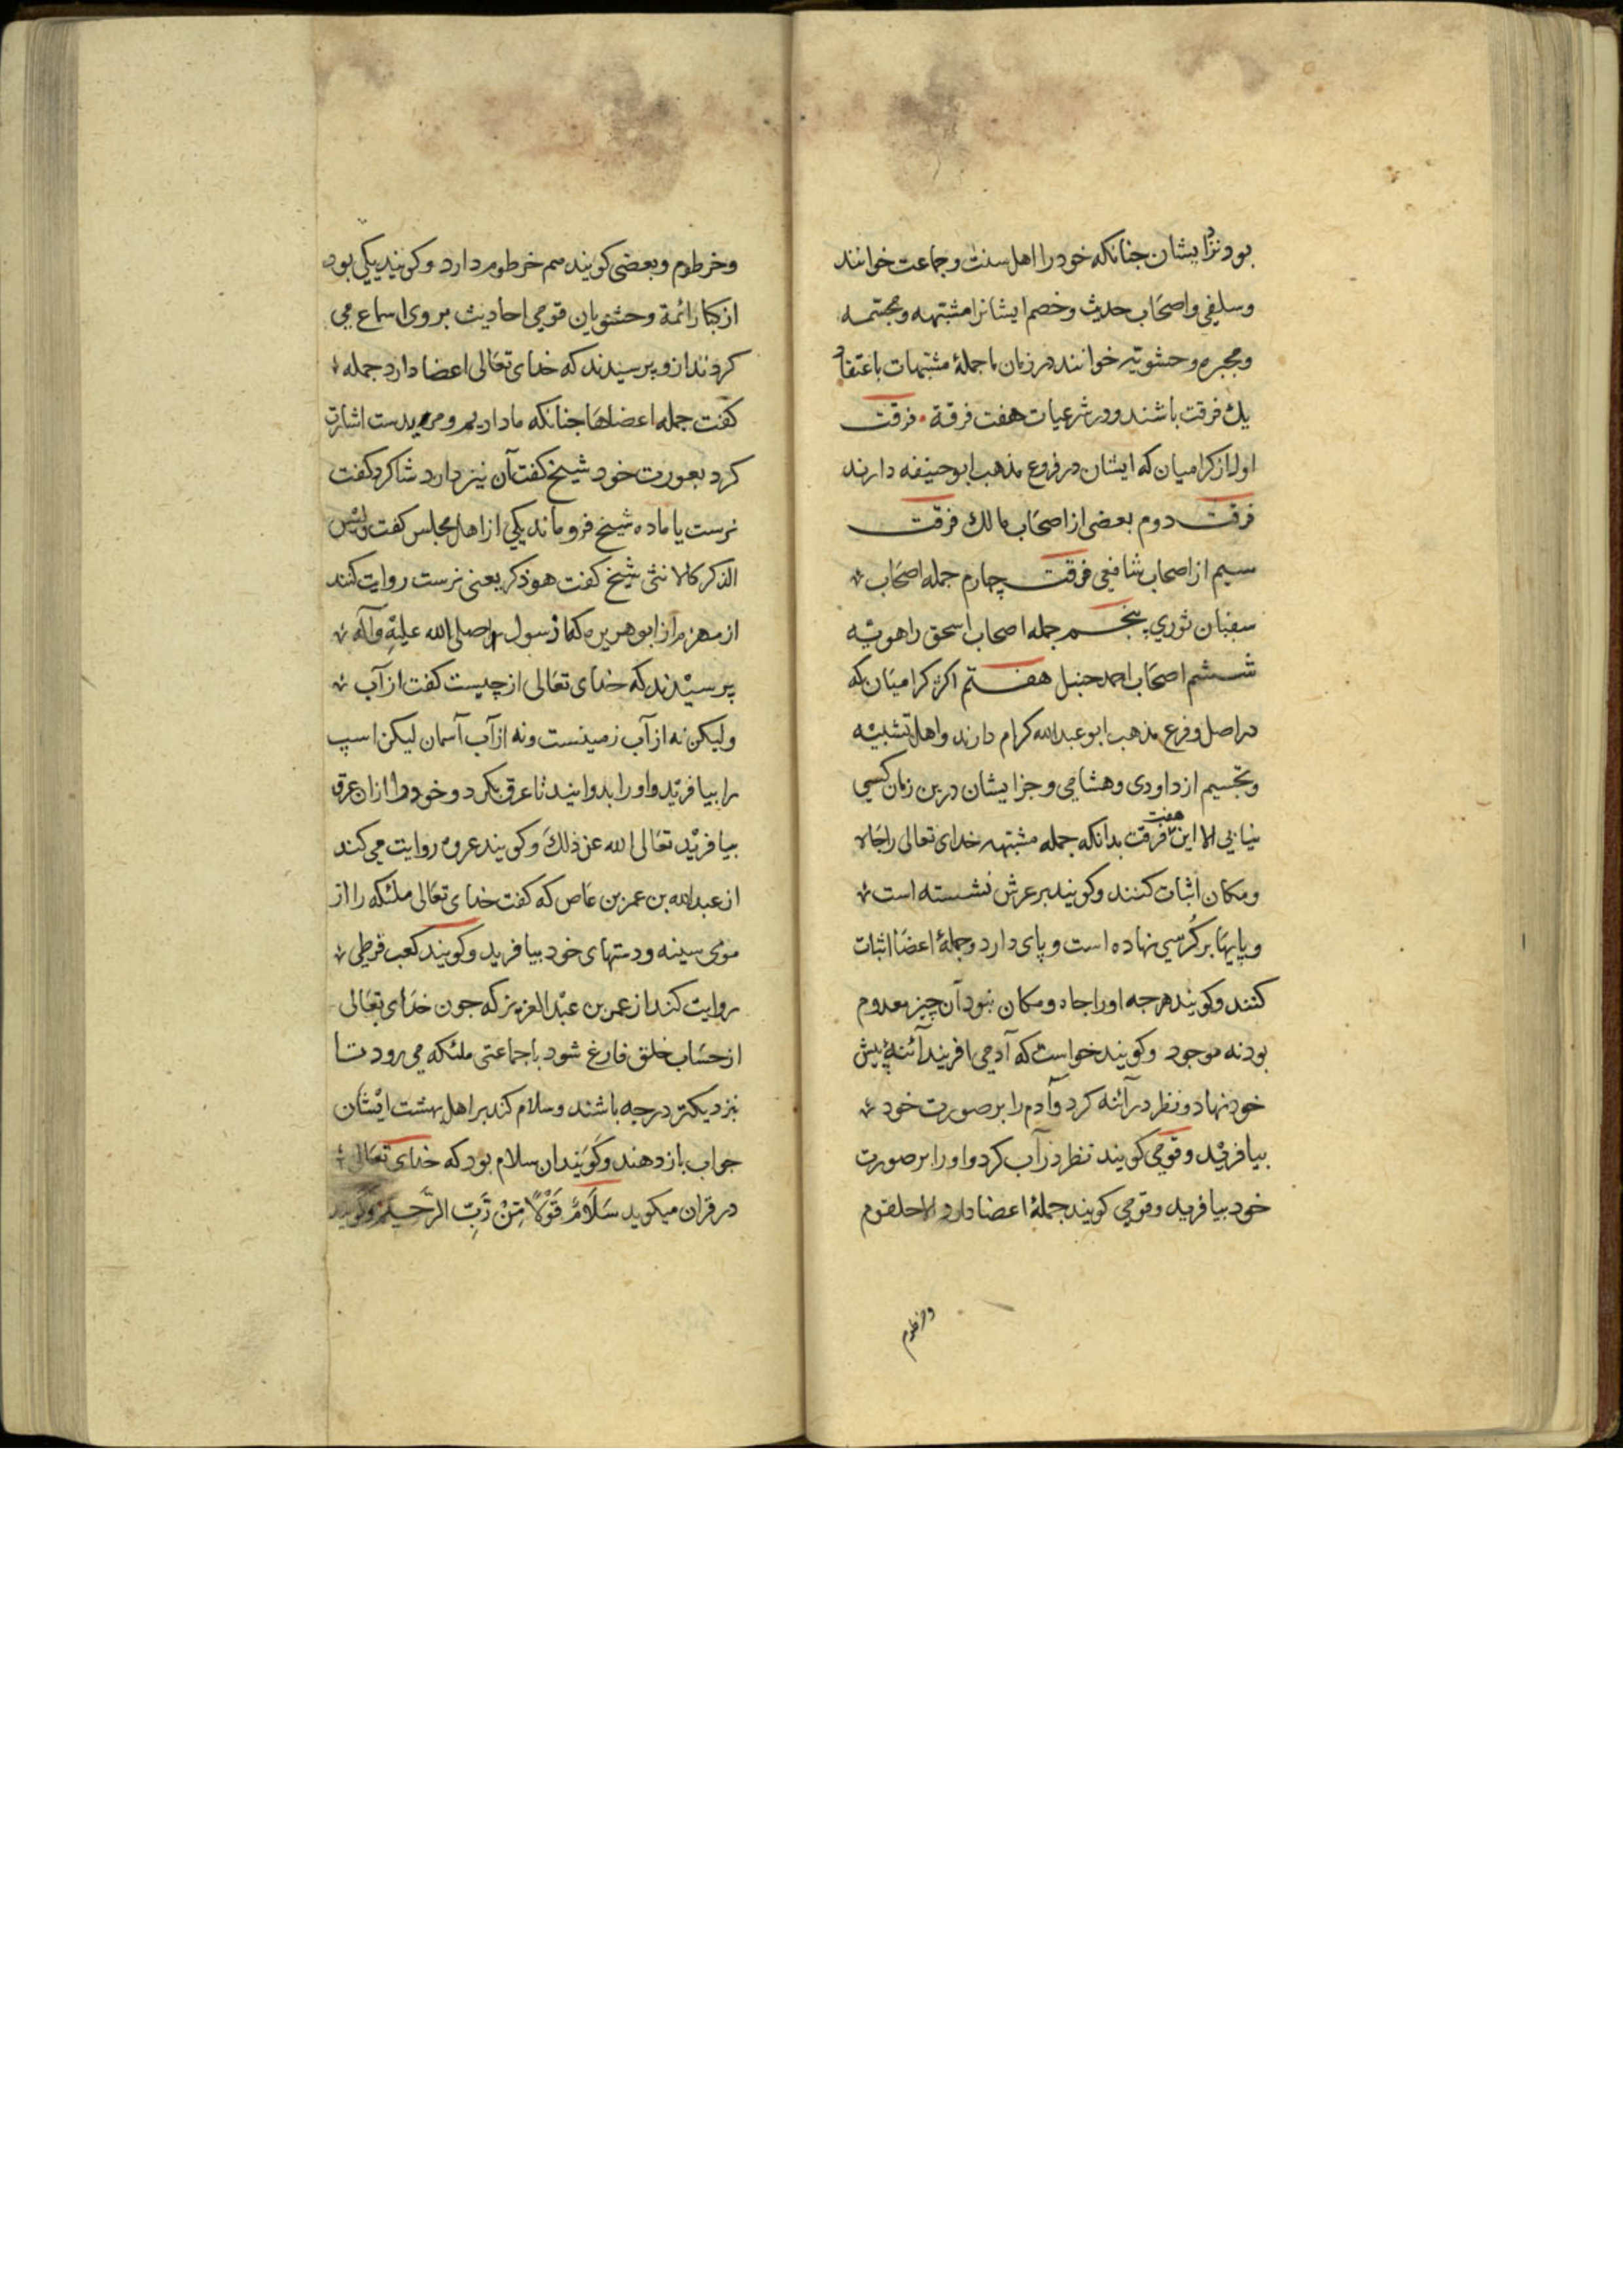 بود نزد ایشان جنانکه خود را اهل سنت و جماعت خوانند
و سلفی و اصحاب حدیث و خصم ایشانرا مشبهه و مجسمه
و مجبره و حشویه خوانند در زمان ما جملهٔ مشبهات باعتقاد
یك فرقت باشند و در شرعیات هفت فرقة فرقت
اول از کرامیان که ایشان در فروع مذهب ابو حنیفه دارند
فرقت دوم بعضی از اصحاب مالك فرقت
سیم از اصحاب شافعی فرقت چهارم جمله اصحاب
سفیان ثوری پنجم جمله اصحاب اسحق راهویه
ششم اصحاب احمد حنبل هفتم اکثر کرامیان که
در اصل و فرع مذهب ابو عبدالله کرام دارند و اهل تشبیه
و تجسیم از داودی و هشامی و جز ایشان درین زمان کسی
نیابی الا این هفت فرقت بدانکه جمله مشبهه خدای تعالی را جا
و مکان اثبات کنند و کویند بر عرش نشسته است
و پایها بر کرسی نهاده است و پای دارد و جملهٔ اعضا اثبات
کنند و کویند هرجه اورا جا و مکان نبود آن چیز معدوم
بود نه موجود و کویند خواست که آدمی افریند آئنهٔ پیش
خود نهاد و نظر در آئنه کرد و آدم را بر صورت خود
بیافرید و قومی کویند نظر در آب کرد و اورا بر صورت
خود بیافرید و قومی کویند جملهٔ اعضا دارد الا حلقوم
وخرطوم
و خرطوم و بعضی کویند هم خرطوم دارد و کویند یکی بود
از کبار ائمة و حشویان قومی احادیث بر وی اسماع می
کردند ازو پرسیدند که خدای تعالی اعضا دارد جمله
کفت جمله اعضاها جنانکه ما داریم و بدست اشارت
کرد بعورت خود شیخ کفت آن نیز دارد شاکرد کفت
نرست یا ماده شیخ فرو ماند یکی از اهل مجلس کفت ولیس
الذکر کالانثی شیخ کفت هو ذکر یعنی نرست روایت کنند
از ابو هریره که از رسول صلی الله علیه وآله
پرسیدند که خدای تعالی از چیست کفت از آب
ولیکن نه از آب زمینست و نه از آب آسمان لیکن اسپ
را بیافرید و اورا بدوانید تا عرق بکرد و خود را از ان عرق
بیافرید تعالی الله عن ذلك و کویند عروه روایت می کند
از عبدالله بن عمر بن عاص که کفت خدای تعالی ملئکه را از
موی سینه و دستهای خود بیافرید و کویند کعب قرظی
روایت کند از عمر بن عبد العزیز که جون خدای تعالی
از حساب خلق فارغ شود با جماعتی ملئکه می رود تا
نزدیکتر درجه باشند و سلام کند بر اهل بهشت ایشان
جواب باز دهند و کویند ان سلام بود که خدای تعالی
در قران میکوید سَلَامٌ قَوْلًا مِّنْ رَّبٍّ الرَّحیم و کویند